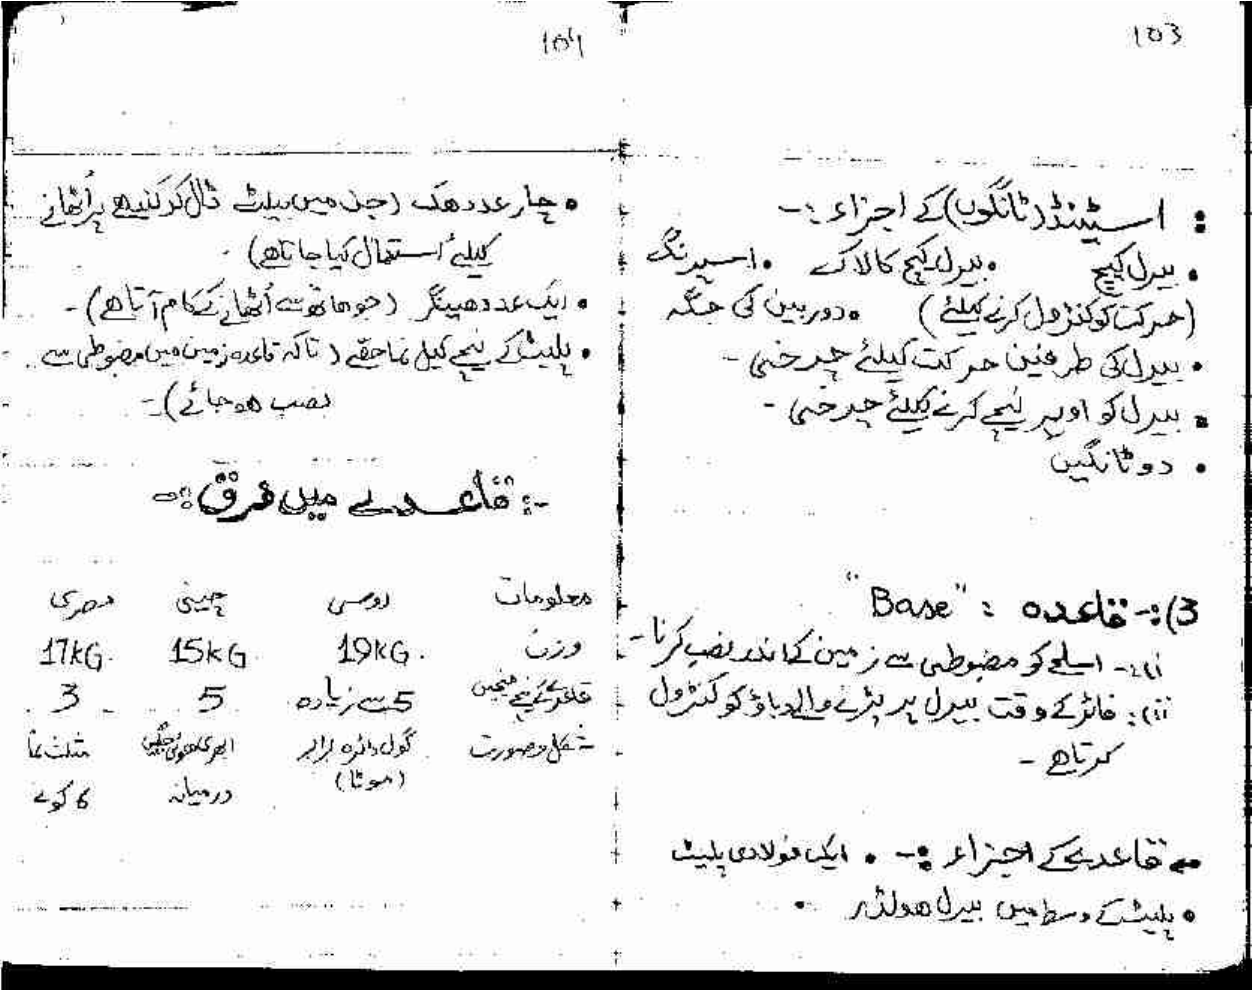 103
اسٹینڈ (ٹانگوں) کے اجزاء :-
• بیرل کیچ • بیرل کیچ کا لاک • اسپرنگ
(حرکت کو کنٹرول کرنے کیلئے) • دوربین کی جگہ
• بیرل کی طرفین حرکت کیلئے چرخی -
• بیرل کو اوپر نیچے کرنے کیلئے چرخی -
• دو ٹانگیں
3):- قاعدہ : "Base"
i):- اسلحے کو مضبوطی سے زمین کے اندر نصب کرنا -
ii):- فائر کے وقت بیرل پر پڑنے والے دباؤ کو کنٹرول
کرتا ھے -
قاعدے کے اجزاء :- • ایک فولادی پلیٹ
• پلیٹ کے وسط میں بیرل ھولڈر •
104
• چار عدد ھک (جن میں بیلٹ ڈال کر کندھے پر اُٹھانے
کیلئے اُستعمال کیا جاتا ھے) -
• ایک عدد ھینگر (جو ھاتھ سے اُٹھانے کے کام آتا ھے) -
• پلیٹ کے نیچے کیل نما حصے (تاکہ قاعدہ زمین میں مضبوطی سے
نصب ھو جائے) -
-: قاعدے میں فرق :-
معلومات روسی چینی مصری
وزن 19KG. 15KG. 17KG.
قاعدے کے نیچے میخیں 5 سے زیادہ 5 3
شکل و صورت گول دائرہ برابر ابھری ھوئی مثلث نما
(موٹا) درمیانہ 6 کونے